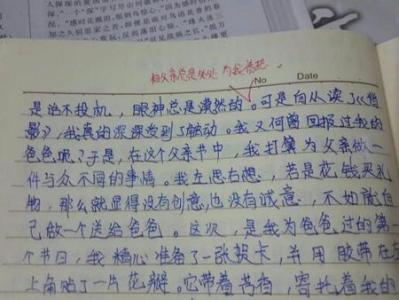 父亲总是处处 为我着想
No Date
是话不投机，眼神总是漠然的。可是自从读了《背
影》，我真的深深受到了触动。我又何曾回报过我的
爸爸呢？于是，在这个父亲节中，我打算为父亲做一
件与众不同的事情。我左思右想，若是花钱买礼
物，那么就显得没有创意，也没有诚意，不如就自
己做一个送给爸爸。这次，是我为爸爸过的第一
个节日，我精心准备了一张贺卡，并用胶带在左
上角贴了一片花瓣。它带着芳香，寄托着我的